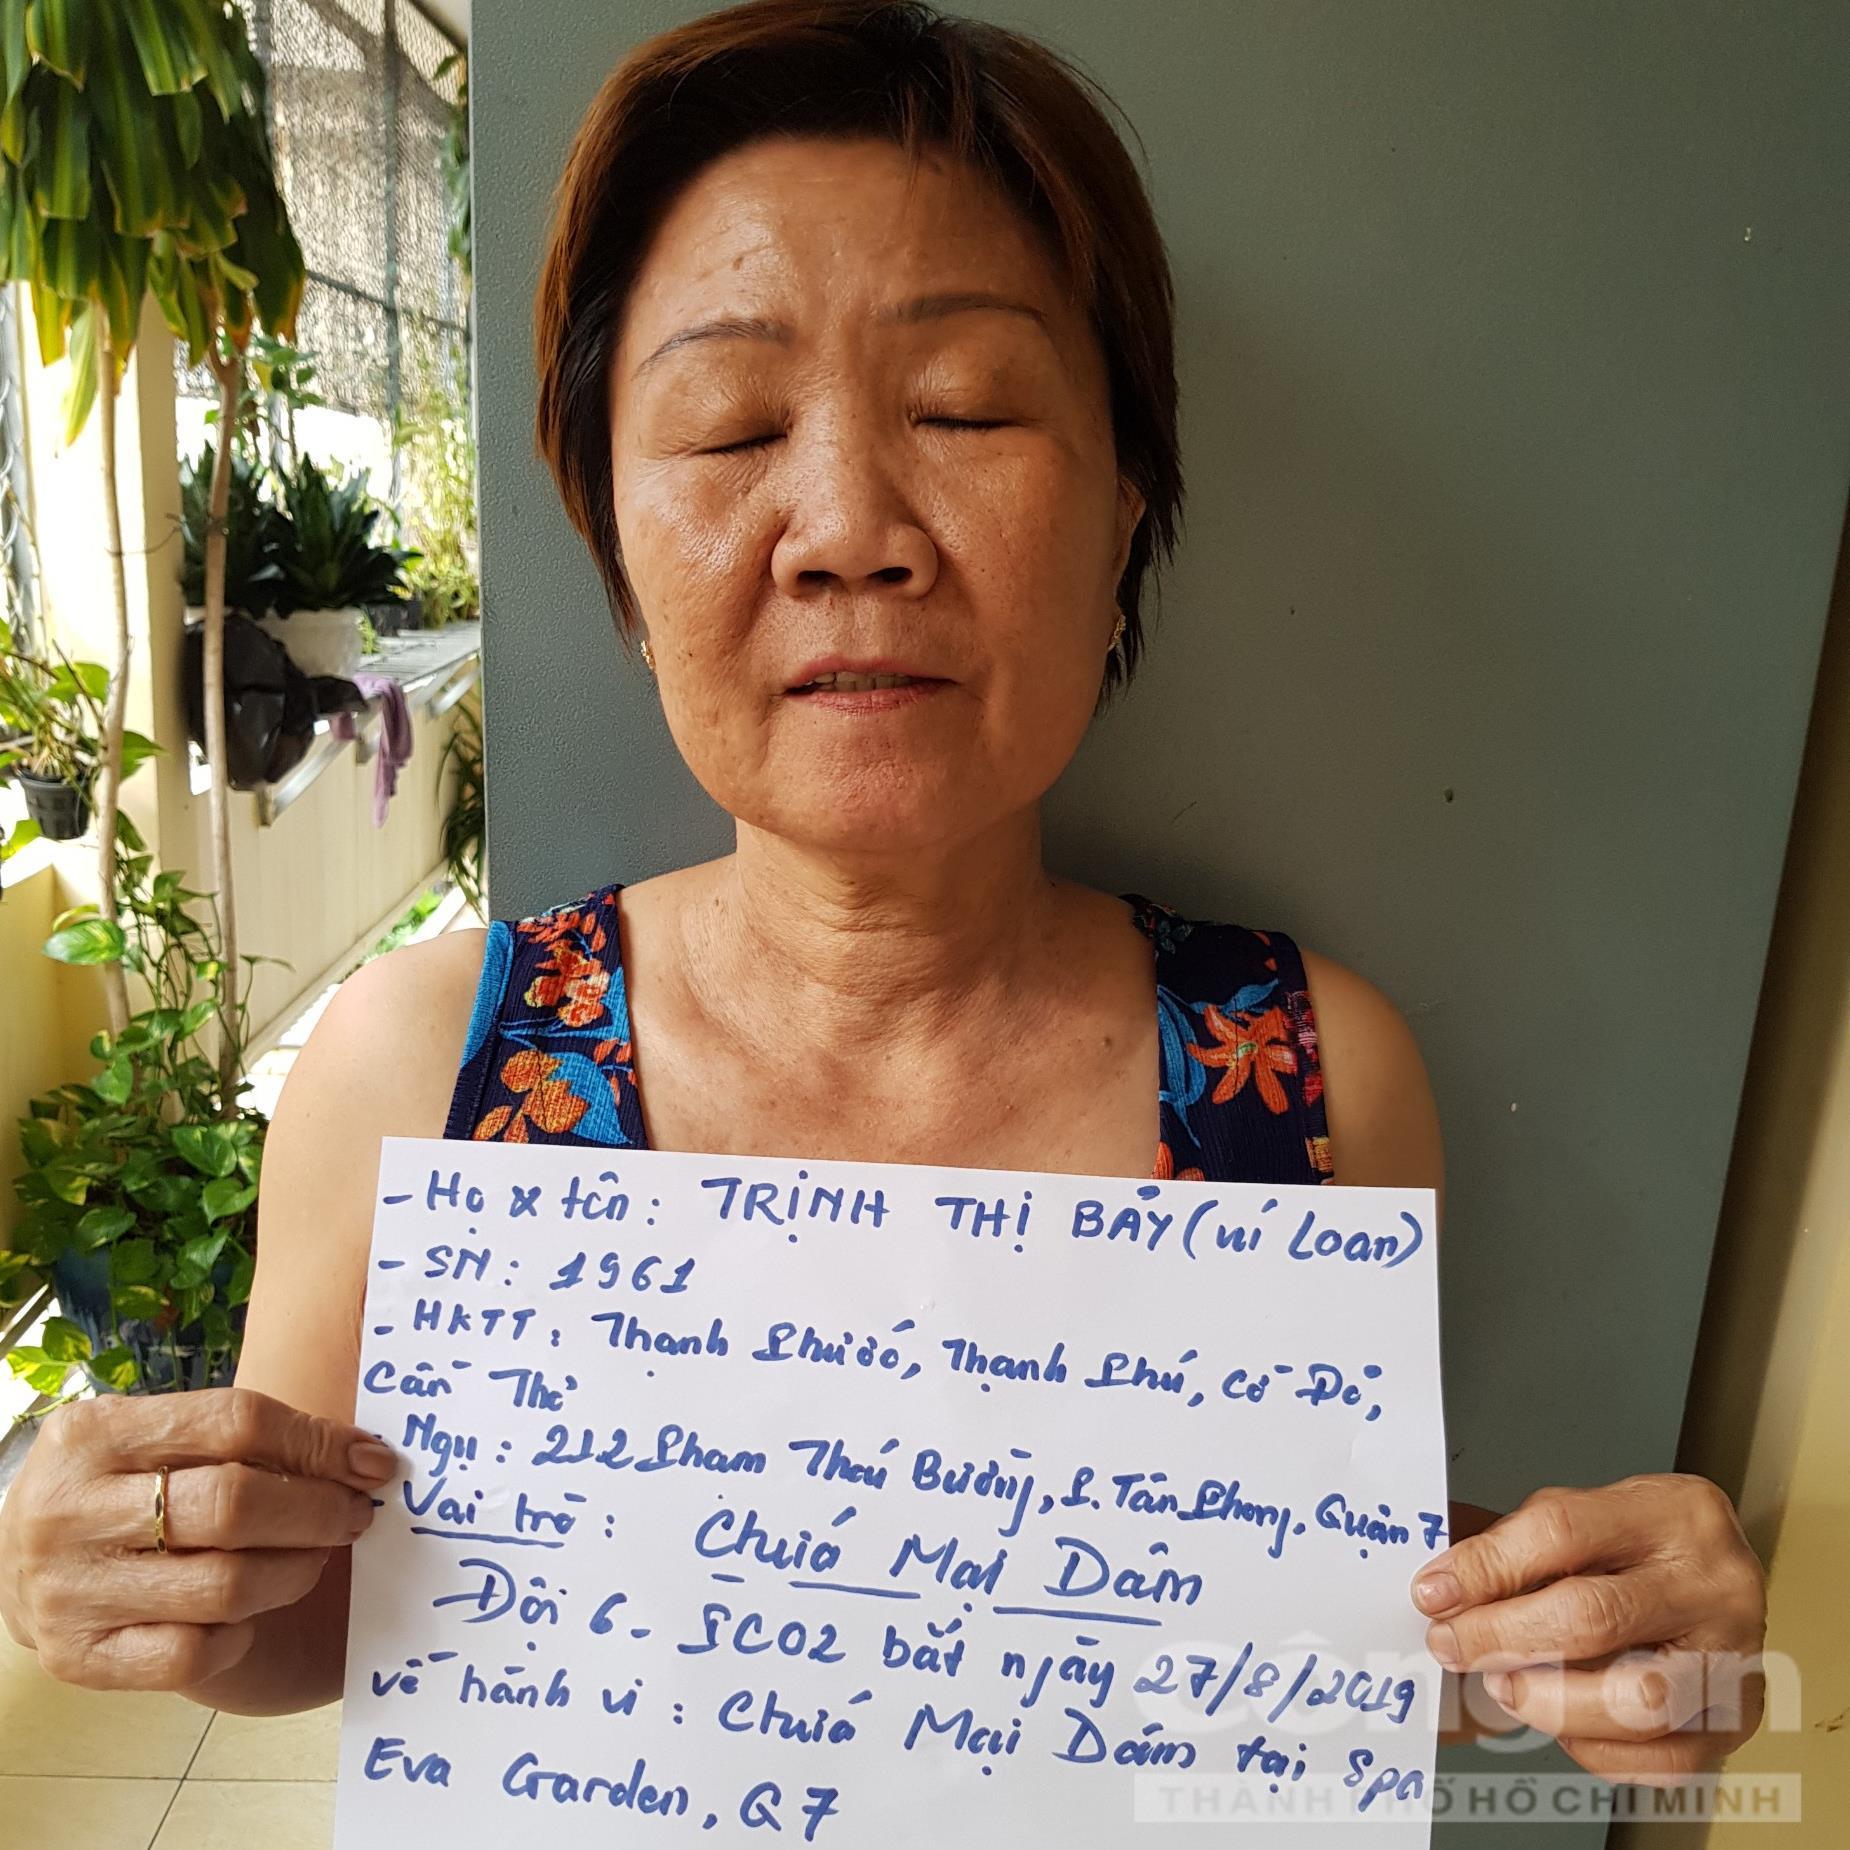 - Họ & tên: TRỊNH THỊ BẢY (Mí Loan)
- SN: 1961
- HKTT: Thạnh Phước, Thạnh Phú, Cờ Đỏ,
Cần Thơ
- Ngụ: 212 Phạm Thái Bường, P. Tân Phong, Quận 7
- Vai trò: Chứa Mại Dâm
Đội 6 - PC02 bắt ngày 27/8/2019
về hành vi: Chứa Mại Dâm tại Spa
Eva Garden, Q7
công an
THÀNH PHỐ HỒ CHÍ MINH